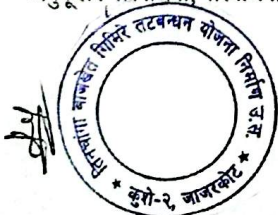 तिनधारा बाजखेत गिमिरे तटबन्धन योजना निर्माण उ.स.
★ कुशे-२, जाजरकोट ★